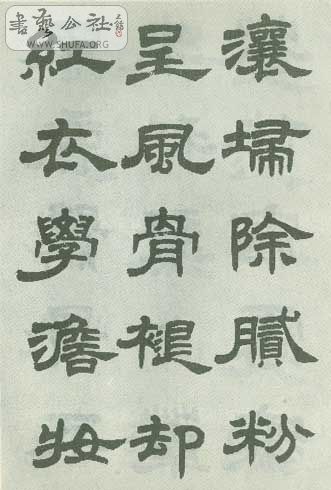 書藝公社
WWW.SHUFA.ORG
瀼埽除膩粉
呈風骨褪却
紅衣學澹妝